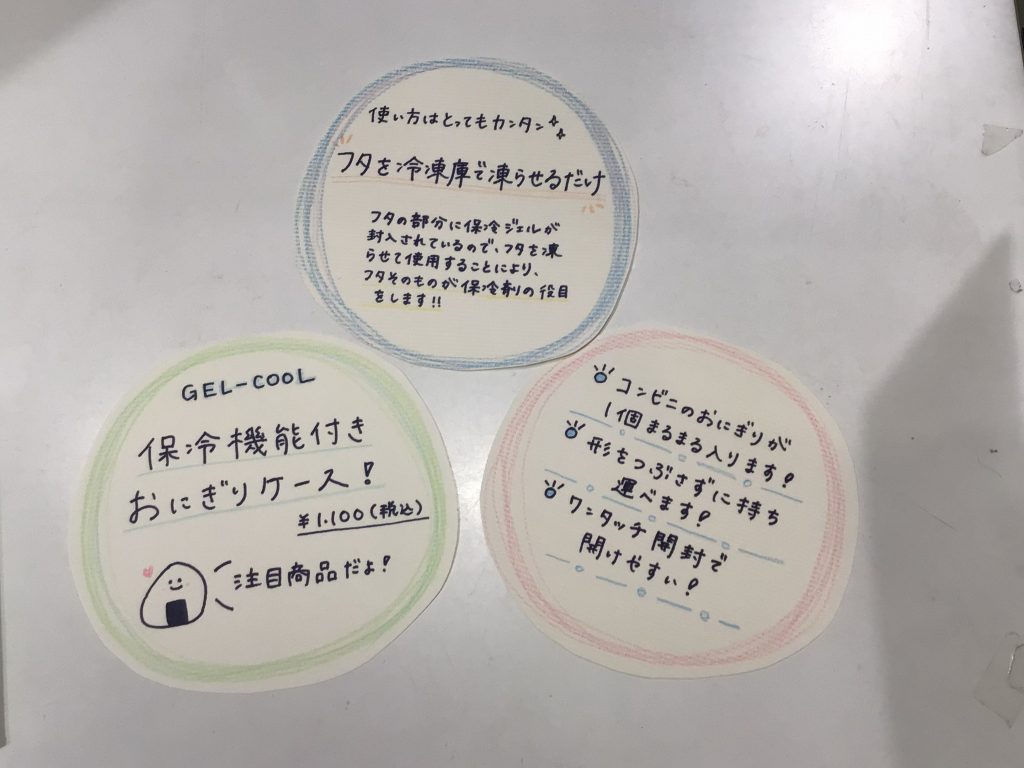 使い方はとってもカンタン
フタを冷凍庫で凍らせるだけ
フタの部分に保冷ジェルが
封入されているので、フタを凍
らせて使用することにより、
フタそのものが保冷剤の役目
をします!!
GEL-COOL
保冷機能付き
おにぎりケース!
¥1.100(税込)
注目商品だよ!
コンビニのおにぎりが
1個まるまる入ります!
形をつぶさずに持ち
運べます!
ワンタッチ開封で
開けやすい!